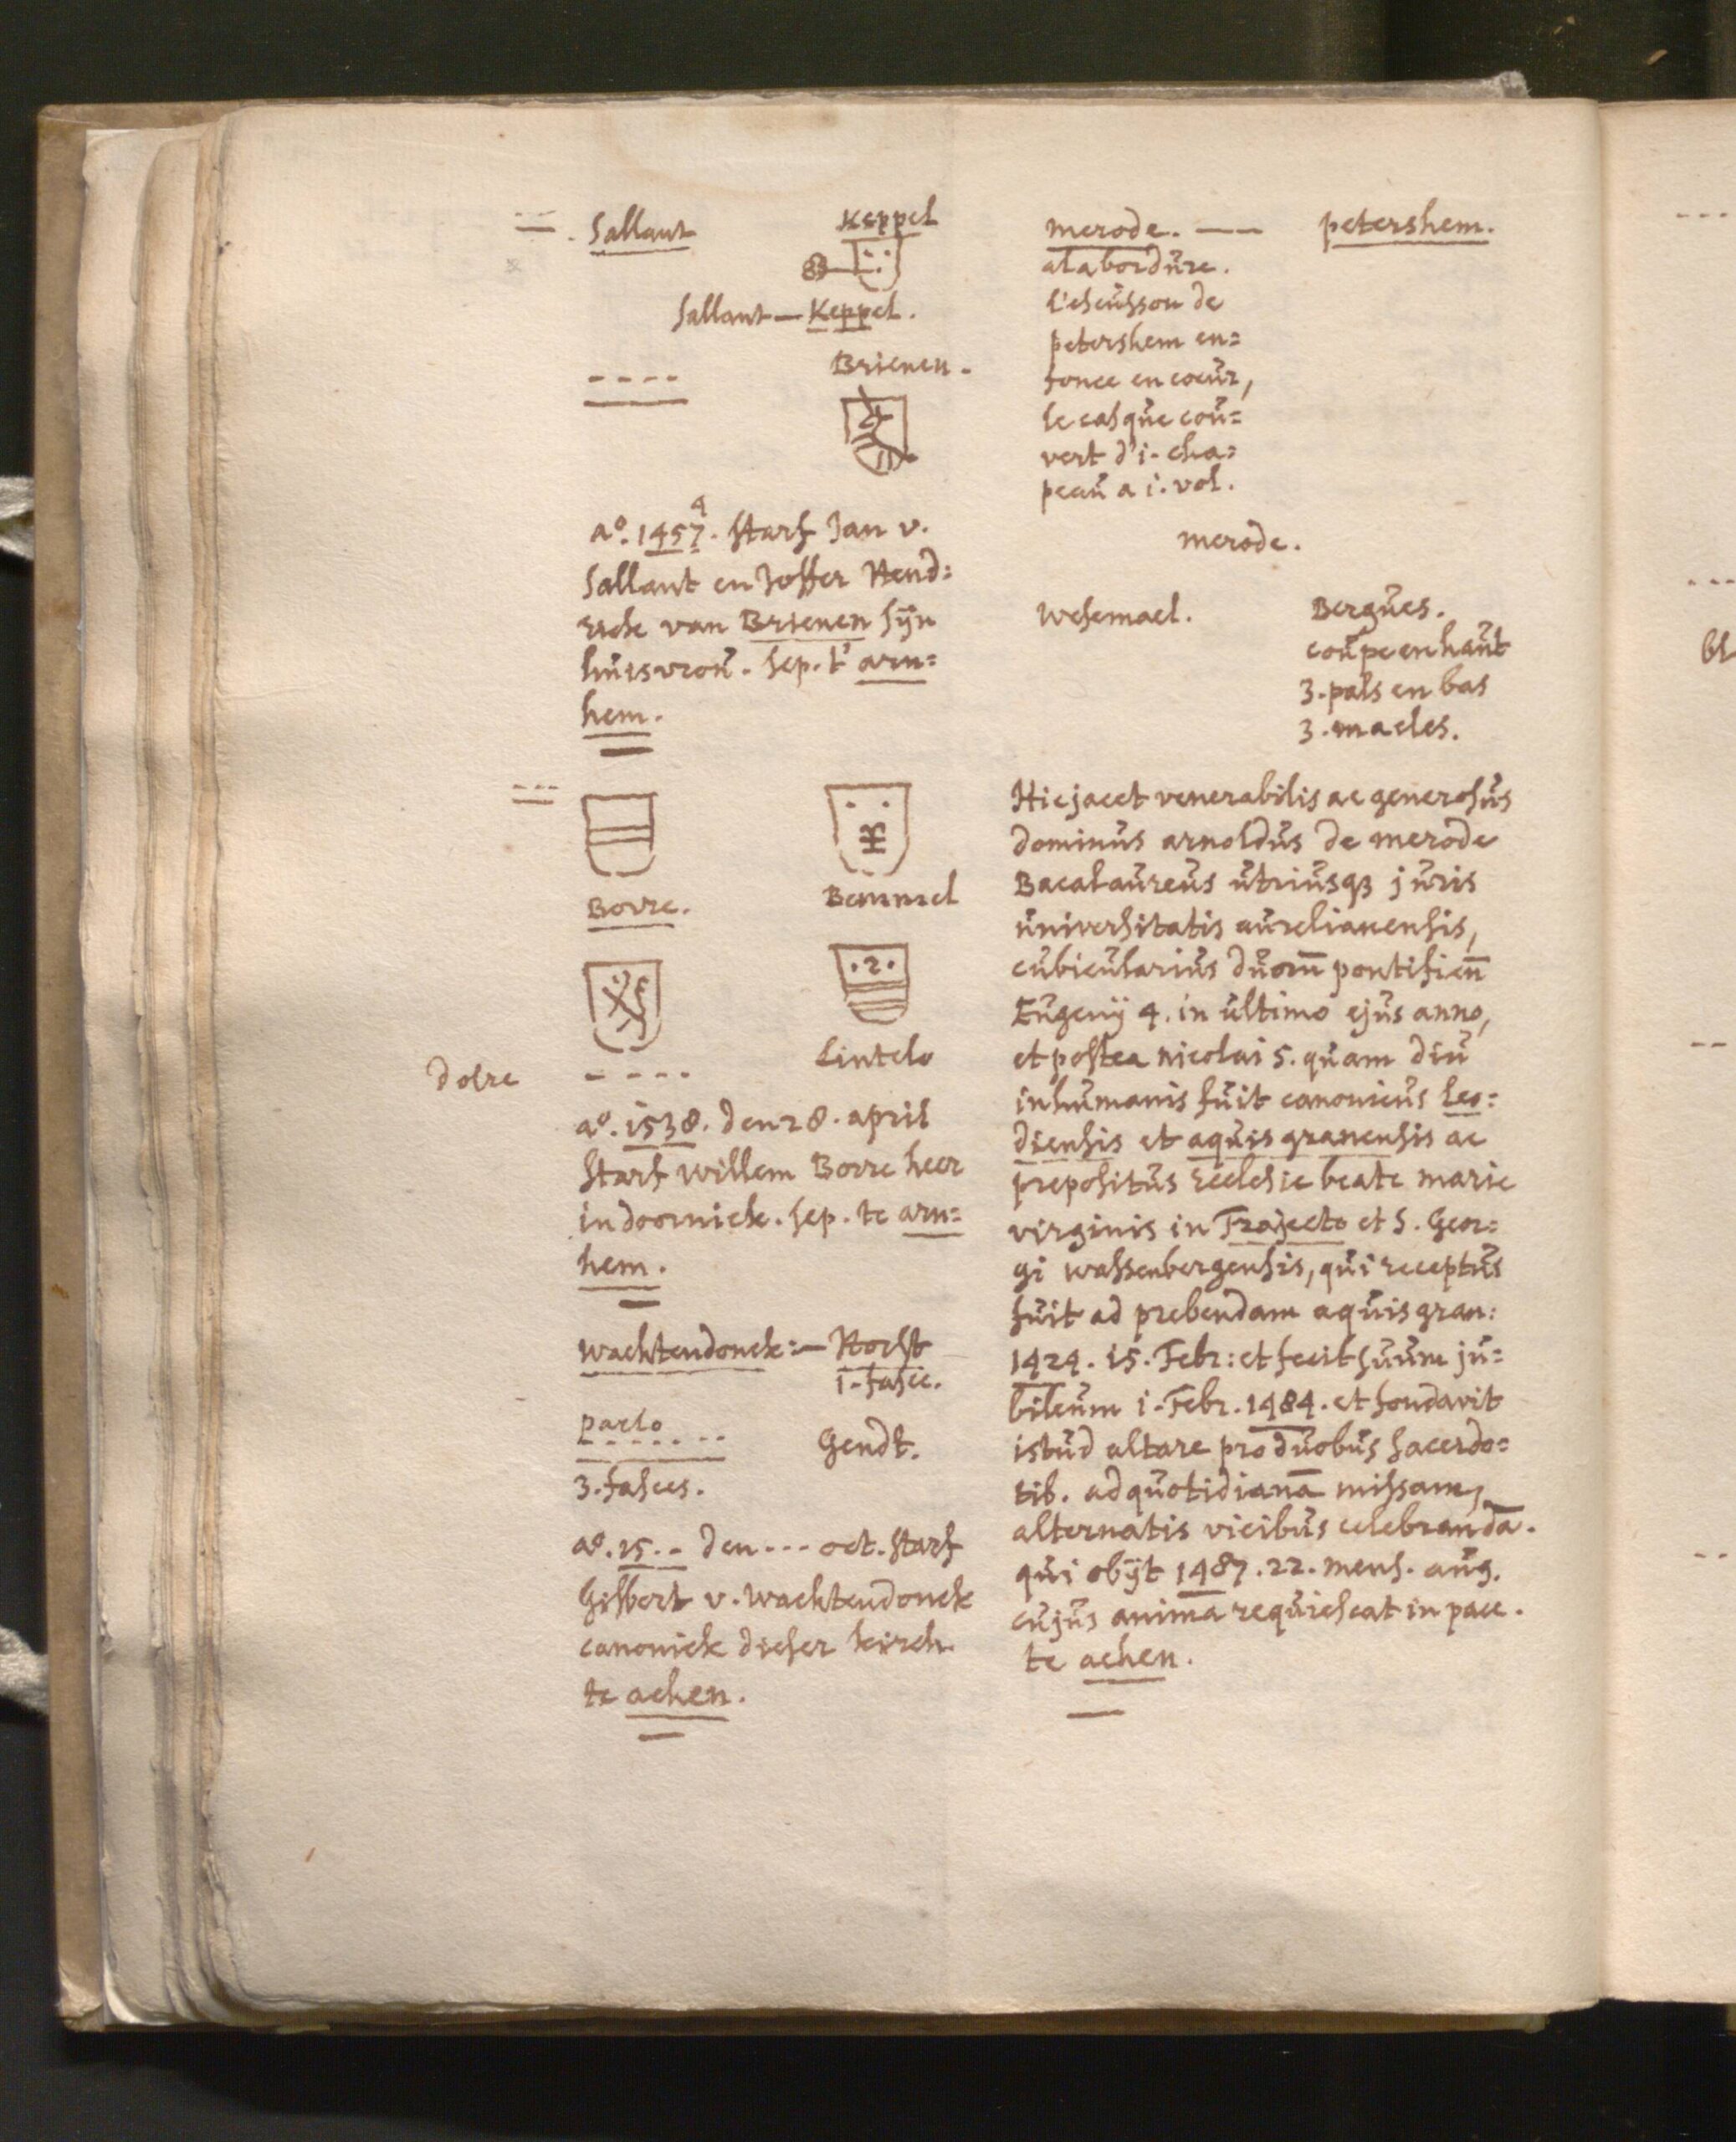 Sallant Keppel
Sallant — Keppel.
Brienen.
aº. 1457. starf Jan v.
4
Sallant en Joffer Hend=
rick van Brienen sijn
huisvroŭ. sep. t' arn=
hem.
Borre. Bemmel
2
Lintelo
dolre
aº. 1538. den 28. april
starf willem Borre heer
in doornick. sep. te arn=
hem.
wachtendonck: — Horst
1. fasce.
parlo
Gendt.
3. fasces.
aº. 15.. den --- oct. starf
Gisbert v. wachtendonck
canonick dieser kirch
te achen.
merode. — petershem.
alabordŭre.
l'escŭsson de
petershem en=
fonce en coeŭr,
le casqŭe coŭ=
vert d'i. cha=
peaŭ a i. vol.
merode.
Wesemael. Bergŭes.
coŭpe en haŭt
3. pals en bas
3. macles.
Hic jacet venerabilis ac generosŭs
dominŭs arnoldŭs de merode
Bacalaŭreŭs ŭtriŭsqз jŭris
ŭniversitatis aŭrelianensis,
cŭbicŭlariŭs dŭorū pontificū
Eŭgenij 4. in ŭltimo ejŭs anno,
et postea nicolai 5. qŭam diŭ
in hŭmanis fŭit canonicŭs leo=
diensis et aqŭisgranensis ac
prepositŭs ecclesie beate marie
virginis in Trajecto et S. Geor=
gi wassenbergensis, qŭi receptŭs
fŭit ad prebendam aqŭisgran:
1424. 15. Febr: et fecit sŭŭm jŭ=
bileŭm i. Febr. 1484. et fondavit
istŭd altare pro dŭobŭs sacerdo=
tib. ad qŭotidianā missam,
alternatis vicibŭs celebrandā.
qŭi obijt 1487. 22. mens. aŭg.
cŭjŭs anima reqŭiescat in pace.
te achen.